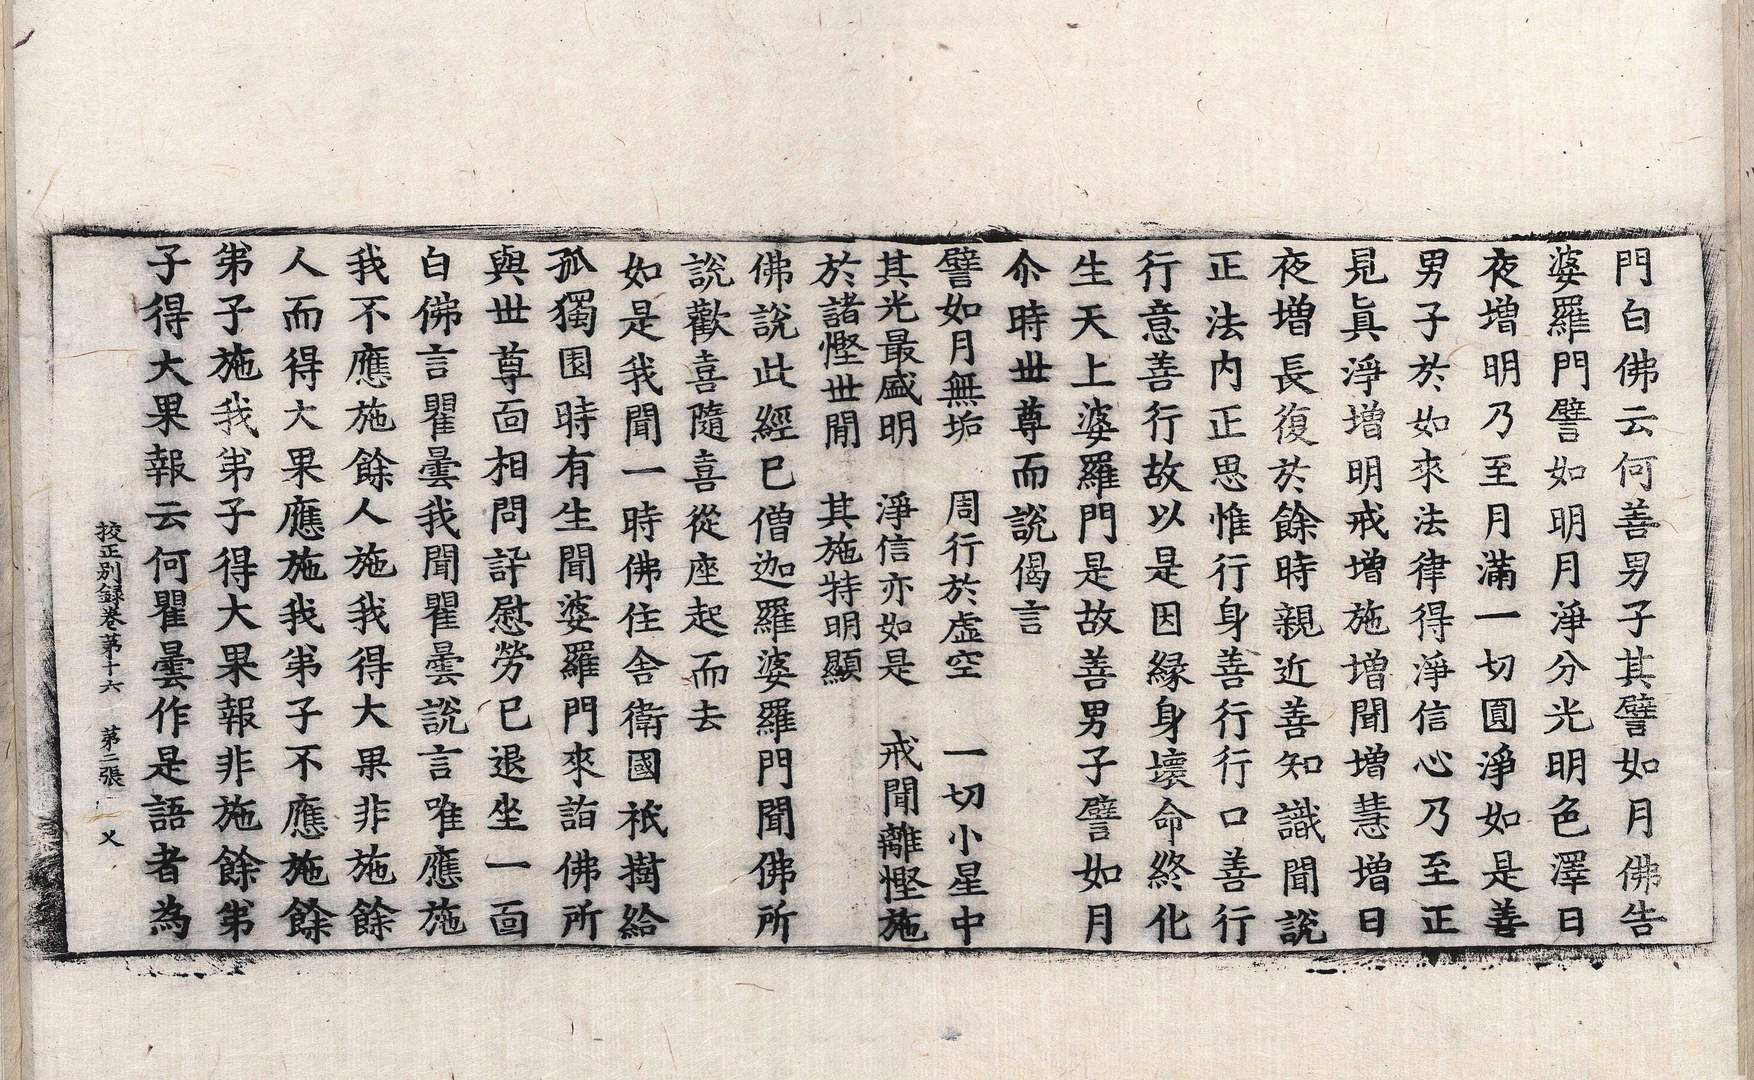 門白佛云何善男子其譬如月佛告
婆羅門譬如明月淨分光明色澤日
夜增明乃至月滿一切圓淨如是善
男子於如來法律得淨信心乃至正
見眞淨增明戒增施增聞增慧增日
夜增長復於餘時親近善知識聞說
正法內正思惟行身善行行口善行
行意善行故以是因緣身壞命終化
生天上婆羅門是故善男子譬如月
尒時世尊而說偈言
譬如月無垢　周行於虛空　一切小星中
其光最盛明　淨信亦如是　戒聞離慳施
於諸慳世閒　其施特明顯
佛說此經已僧迦羅婆羅門聞佛所
說歡喜隨喜從座起而去
如是我聞一時佛住舍衛國祇樹給
孤獨園時有生聞婆羅門來詣佛所
與世尊面相問訊慰勞已退坐一面
白佛言瞿曇我聞瞿曇說言唯應施
我不應施餘人施我得大果非施餘
人而得大果應施我弟子不應施餘
弟子施我弟子得大果報非施餘弟
子得大果報云何瞿曇作是語者為
挍正別録卷第十六　第二張　乂